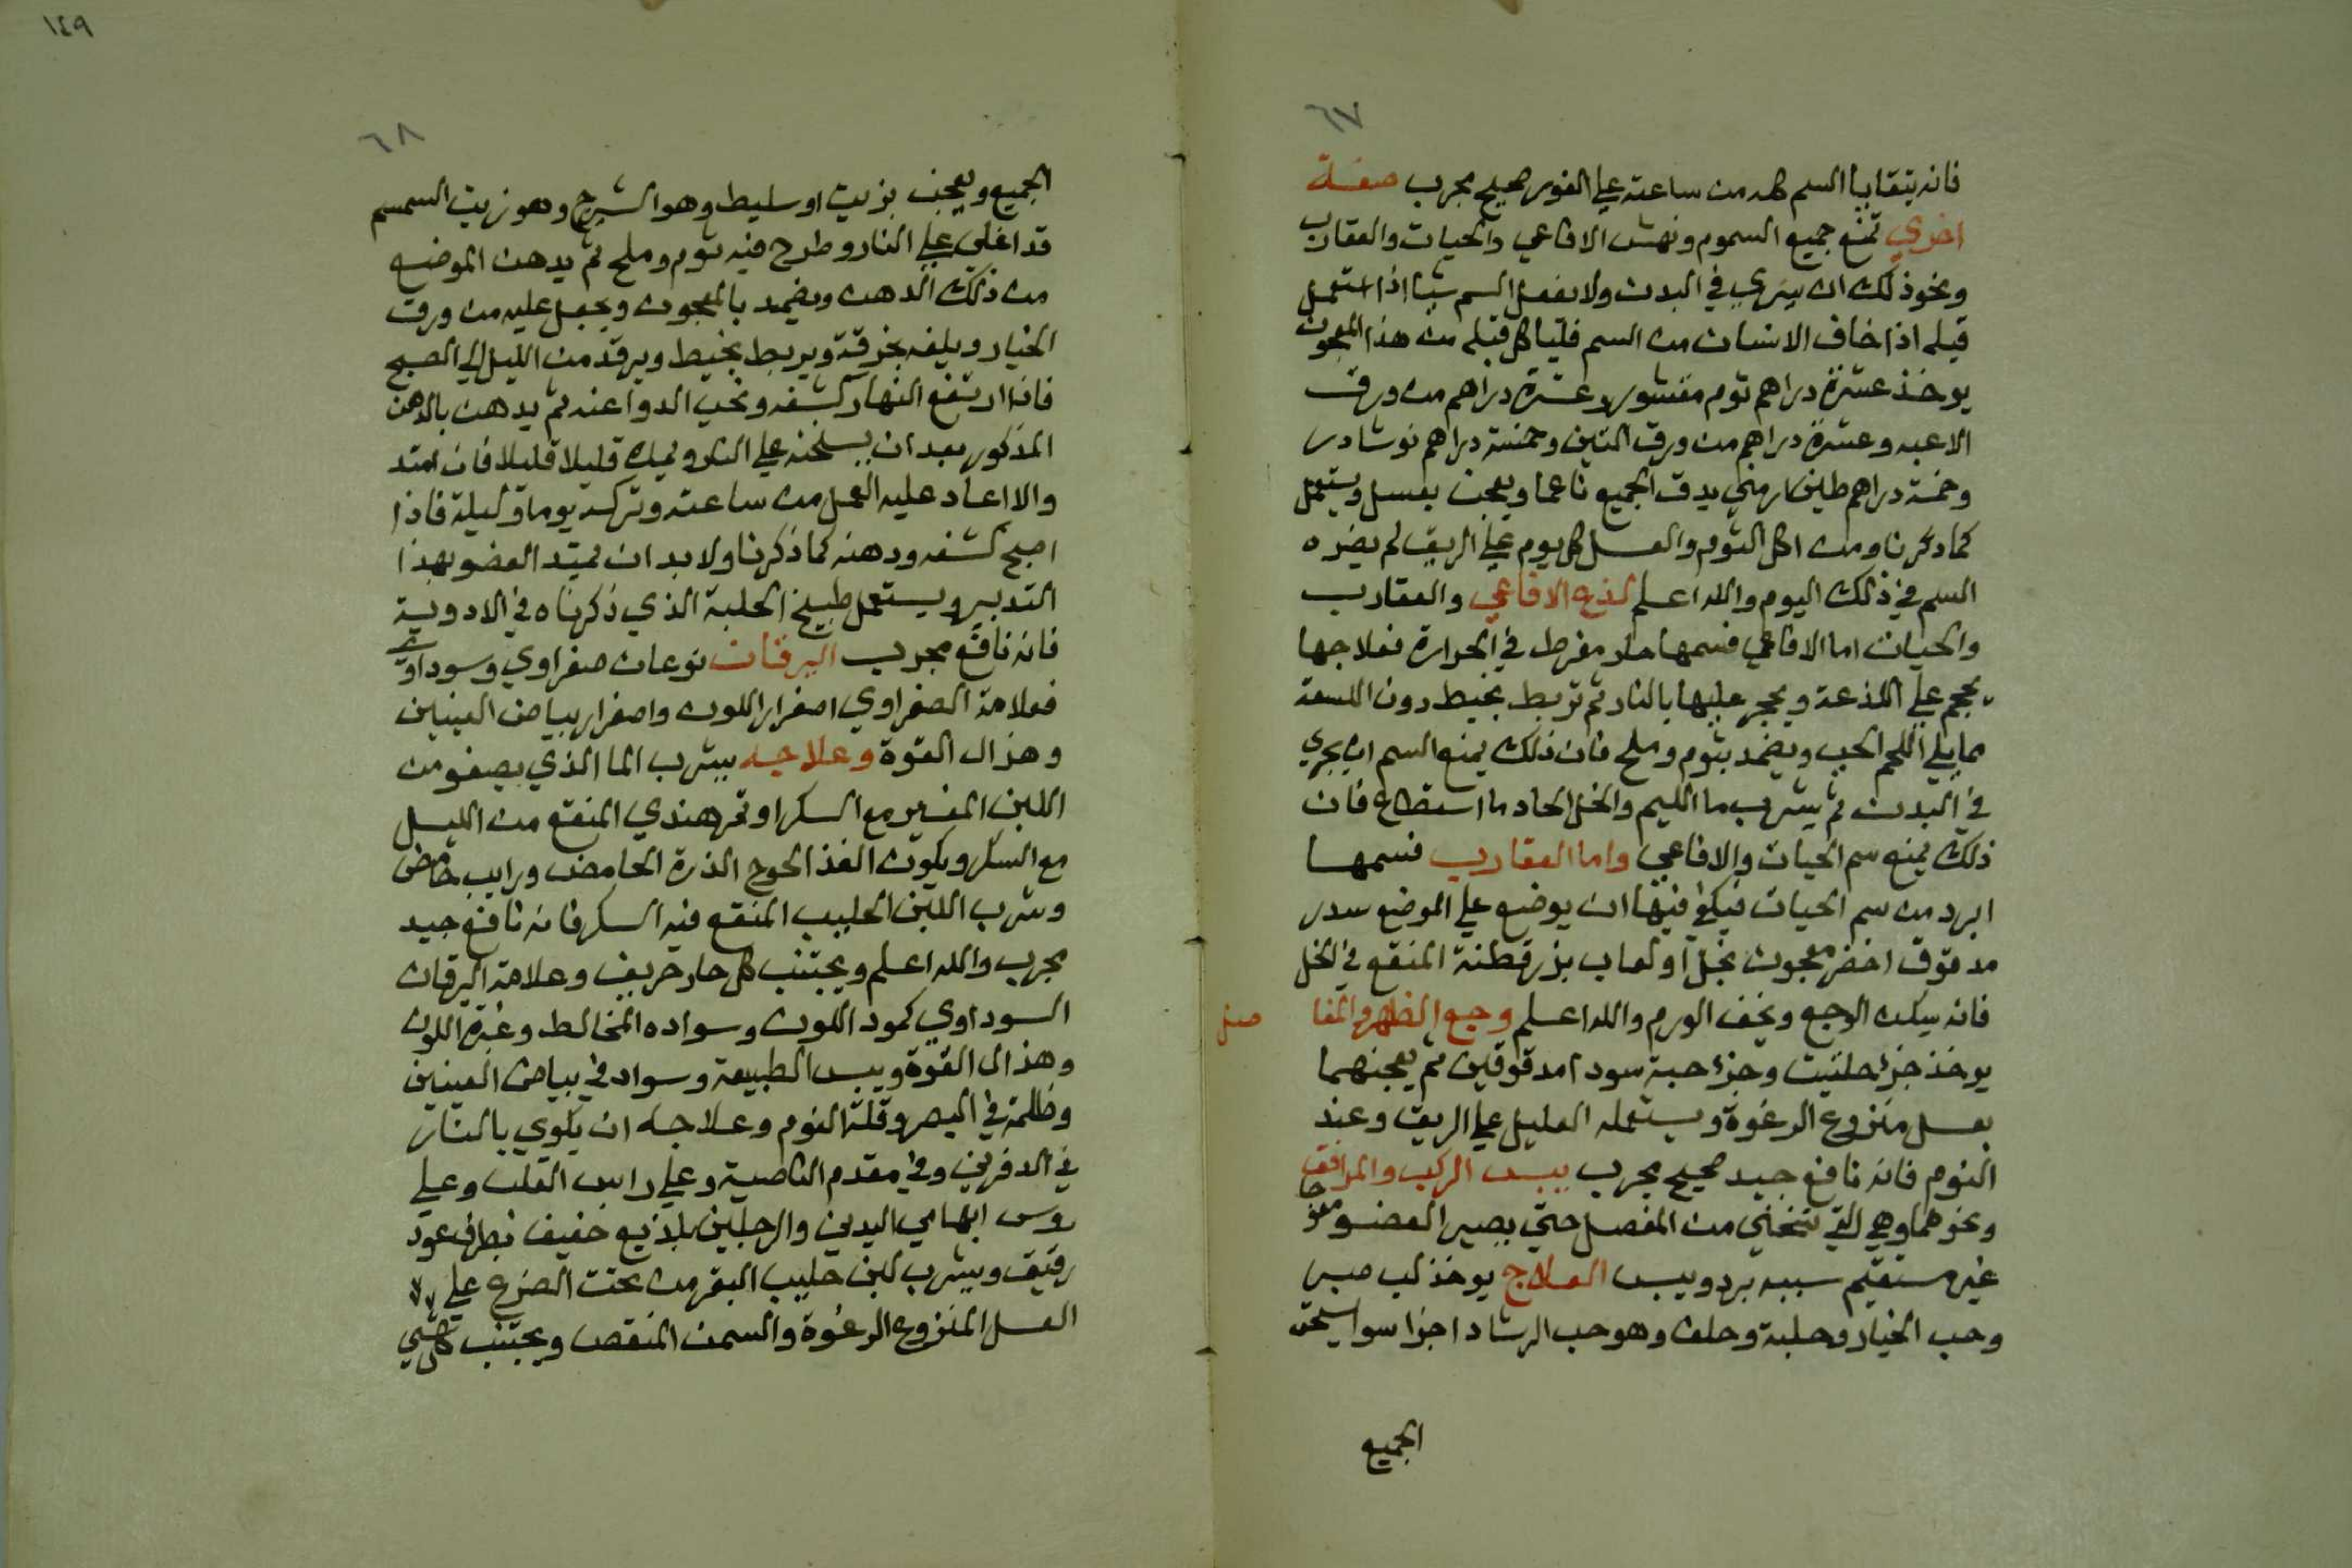 ٦٧
فانه يتقايا السم كله من ساعته علي الفور صحيح مجرب صفة
اخري تمنع جميع السموم ونهش الافاعي والحيات والعقارب
ونحو ذلك ان يسري في البدن ولا يفعل السم شيا اذا استعمل
قبله اذا خاف الانسان من السم فلياكل قبله من هذا المعجون
يوخذ عشرة دراهم توم مقشور وعشرة دراهم من ورق
الاعبه وعشرة دراهم من ورق التين وخمسة دراهم نوشادر
وخمسة دراهم طين ارمني يدق الجميع ناعما ويعجن بعسل ويستعمل
كما ذكرنا ومن اكل التوم والعسل كل يوم علي الريق لم يضره
السم في ذلك اليوم والله اعلم لذع الافاعي والعقارب
والحيات اما الافاعي فسمها حار مفرط في الحرارة فعلاجها
يحجم علي اللذعة ويحجر عليها بالنار ثم تربط بخيط دون اللسعة
مما يلي اللحم الحي ويضمد بتوم وملح فان ذلك يمنع السم ان يجري
في البدن ثم يشرب ما الليم والخل الحاد ما استطاع فان
ذلك يمنع سم الحيات والافاعي واما العقارب فسمها
ابرد من سم الحيات فيكفي فيها ان يوضع علي الموضع سدر
مدقوق اخضر معجون بخل او لعاب بزرقطنة المنقع في الخل
فانه يسكن الوجع ويخف الورم والله اعلم وجع الظهر والمفا
صل
يوخذ جزء حلتيت وجزء حبة سودا مدقوقين ثم يعجنهما
بعسل منزوع الرغوة ويستعمله العليل علي الريق وعند
النوم فانه نافع جيد صحيح مجرب يبس الركب والمرافق
ونحوهما وهي التي تنحني من المفصل حتي يصير العضو معوجا
غير مستقيم سببه برد ويبس العلاج يوخذ لب صبر
وحب الخيار وحلبة وحلف وهو حب الرشاد اجزا سوا يسحق
الجميع
١٤٩
٦٨
الجميع ويعجن بزيت او سليط وهو الشيرج وهو زيت السمسم
قد اغلي علي النار وطرح فيه توم وملح ثم يدهن الموضع
من ذلك الدهن ويضمد بالمعجون ويجعل عليه من ورق
الخيار ويلفه بخرقة ويربط بخيط ويرقد من الليل الي الصبح
فاذا ارتفع النهار كشفه ونحي الدوا عنه ثم يدهن بالدهن
المذكور بعد ان يسخنه علي النار ويمده قليلا قليلا فان امتد
والا اعاد عليه العمل من ساعته وتركه يوما وليلة فاذا
اصبح كشفه ودهنه كما ذكرنا ولا بد ان يمتد العضو بهذا
التدبير ويستعمل طبيخ الحلبة الذي ذكرناه في الادوية
فانه نافع مجرب اليرقان نوعان صفراوي وسوداوي
فعلامة الصفراوي اصفرار اللون واصفرار بياض العينين
وهزال القوة وعلاجه يشرب الما الذي يصفو من
اللبن المغير مع السكر او تمر هندي المنقع من الليل
مع السكر ويكون الغذا لحوج الذرة الحامض ورايب حامض
وشرب اللبن الحليب المنقع فيه السكر فانه نافع جيد
مجرب والله اعلم ويجتنب كل حار حريف وعلامة اليرقان
السوداوي كمود اللون وسواده المخالط وغبرة اللون
وهزال القوة ويبس الطبيعة وسواد في بياض العينين
وظلمة في البصر وقلة النوم وعلاجه ان يكوي بالنار
في الدفرين وفي مقدم الناصية وعلي راس القلب وعلي
روس ابهامي اليدين والرجلين بلذيع خفيف بطرف عود
رقيق ويشرب لبن حليب البقر من تحت الضرع علي
العسل المنزوع الرغوة والسمن المنقص ويجتنب كل شي